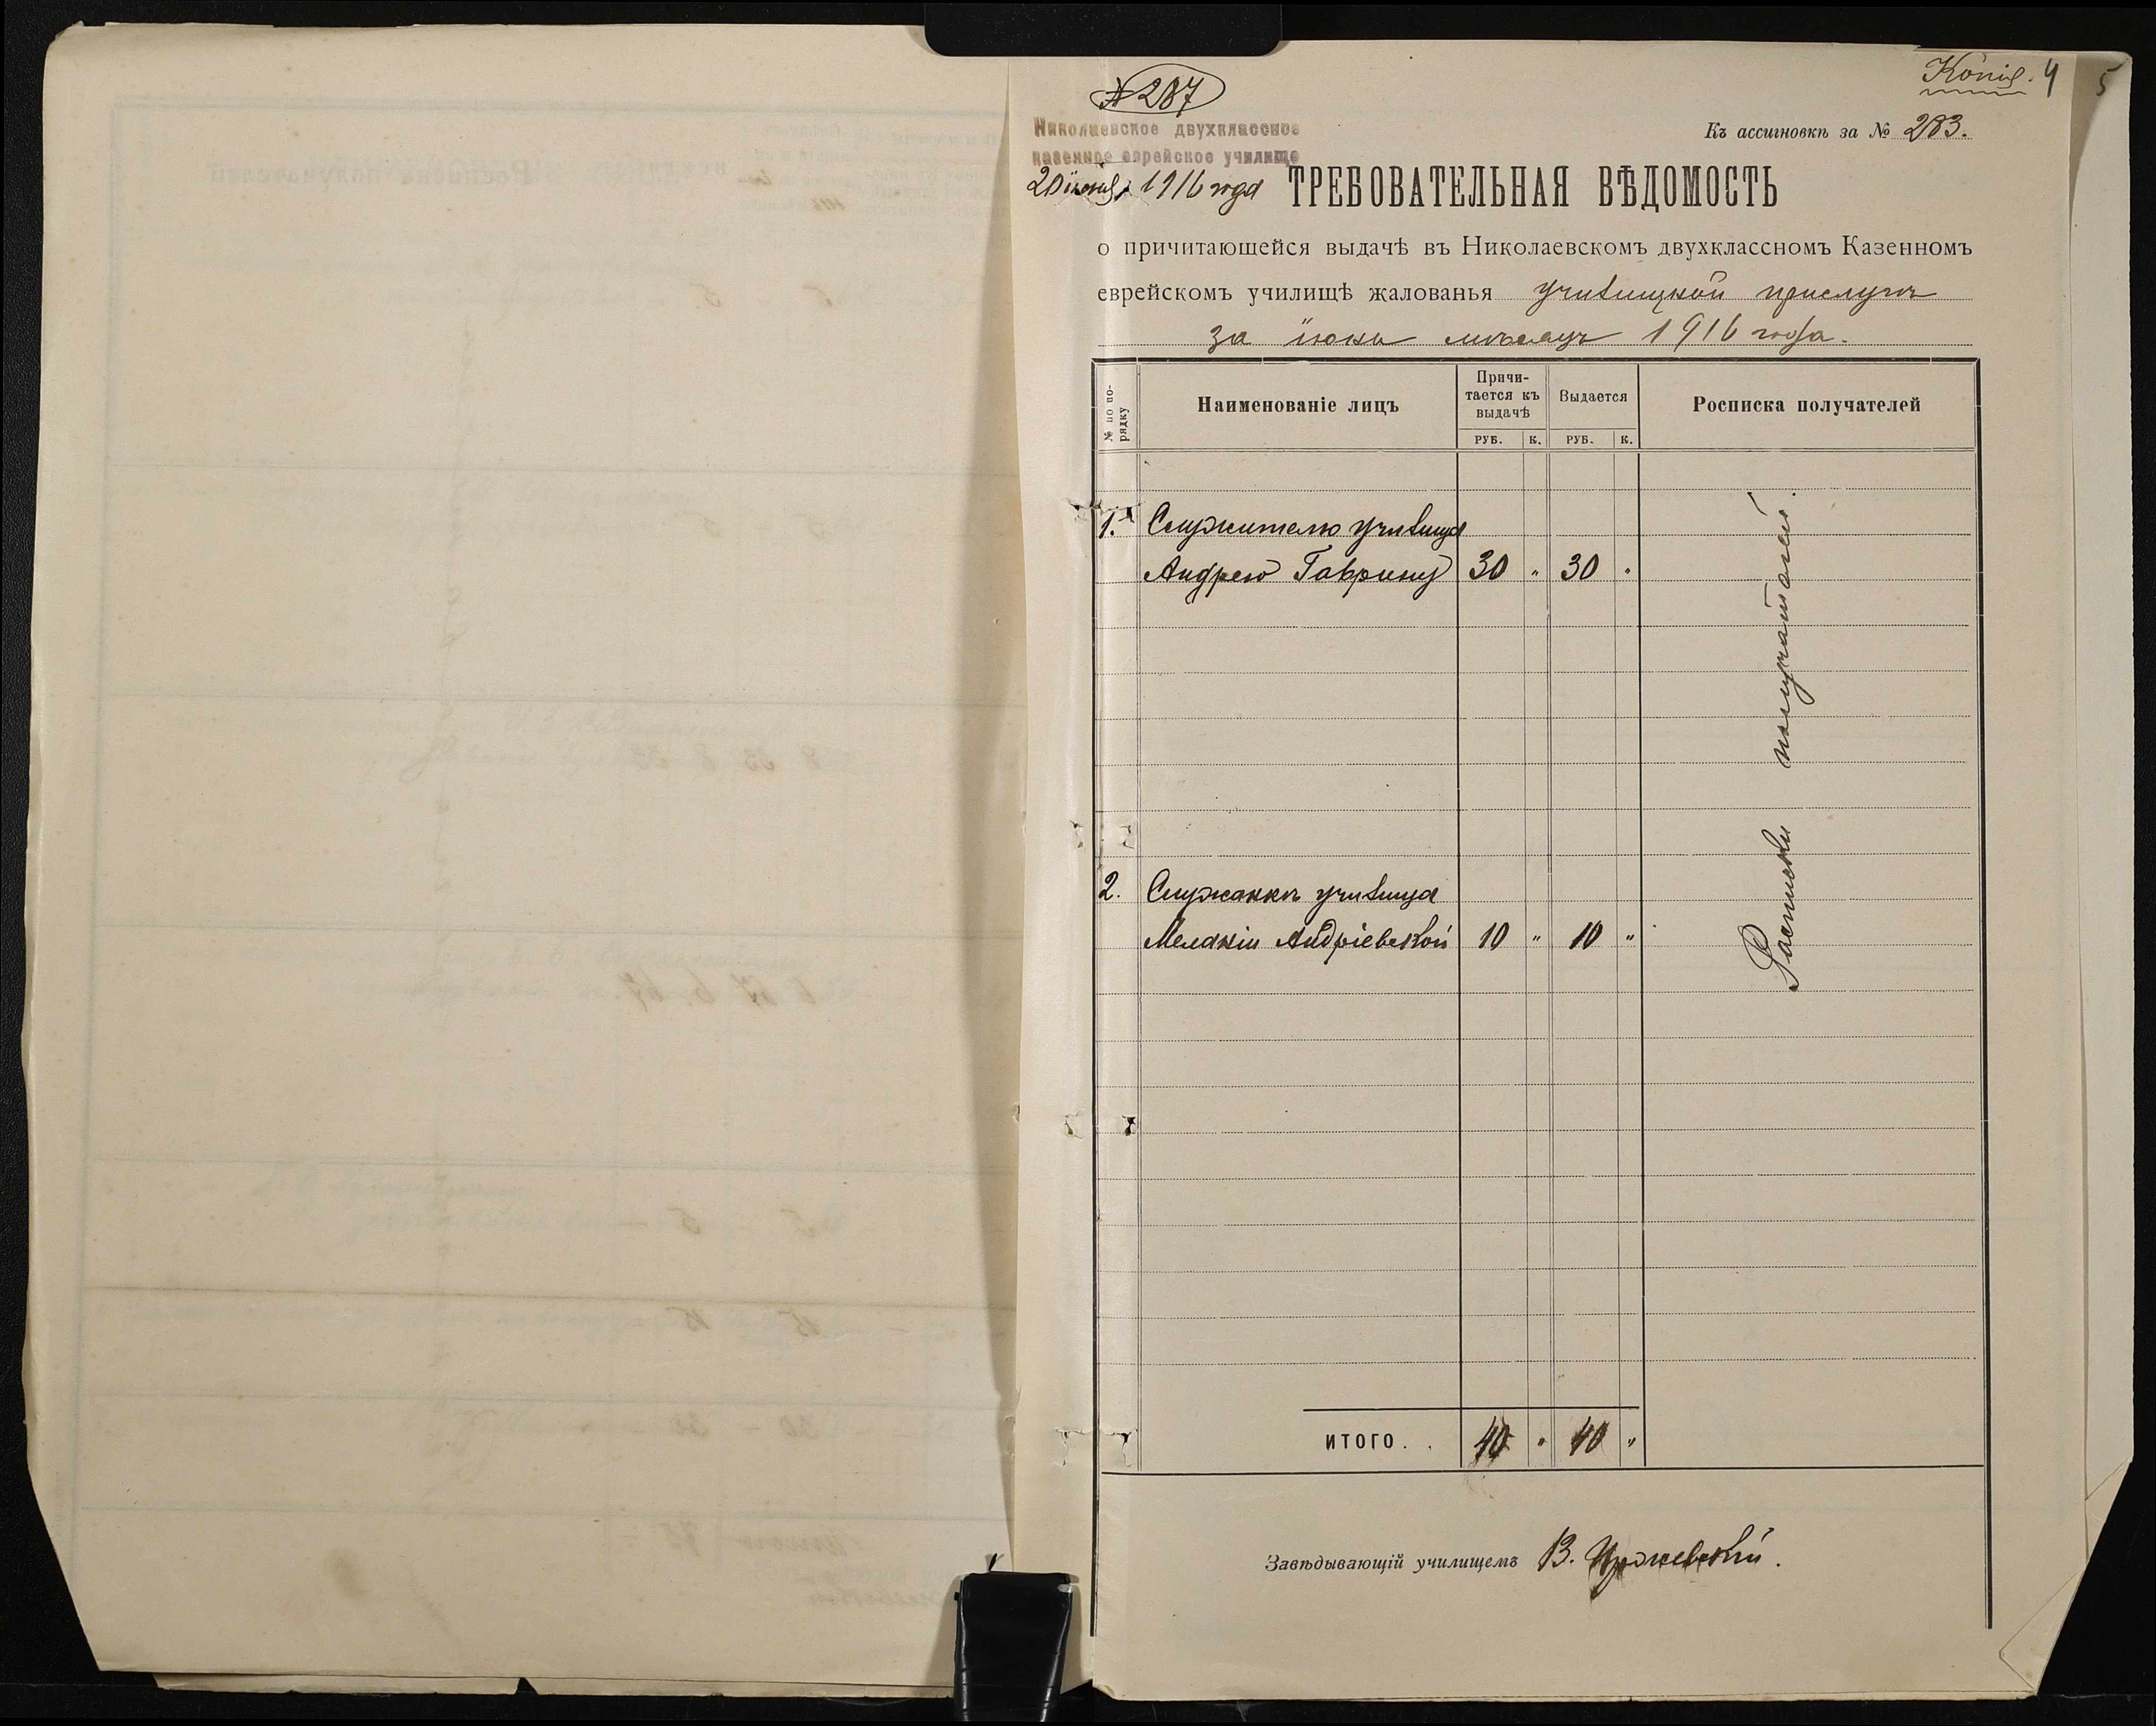 Копія. 4 5
№ 287
Къ ассигновкѣ за № 283.
Николаевское двухклассное
казенное еврейское училище
20 іюня 1916 года
ТРЕБОВАТЕЛЬНАЯ ВѢДОМОСТЬ
о причитающейся выдачѣ въ Николаевскомъ двухклассномъ Казенномъ
еврейскомъ училищѣ жалованья училищной прислугѣ
за іюнь мѣсяцъ 1916 года.
№ по по-
рядку
Наименованіе лицъ
Причи-
тается къ
выдачѣ
Выдается
Росписка получателей
РУБ. К. РУБ. К.
1. Служителю училища
Андрею Гаврину 30 " 30 "
2. Служанкѣ училища
Меланіи Андріевской 10 " 10 "
Расписки получателей.
ИТОГО. . 40 " 40 "
Завѣдывающій училищемъ В.